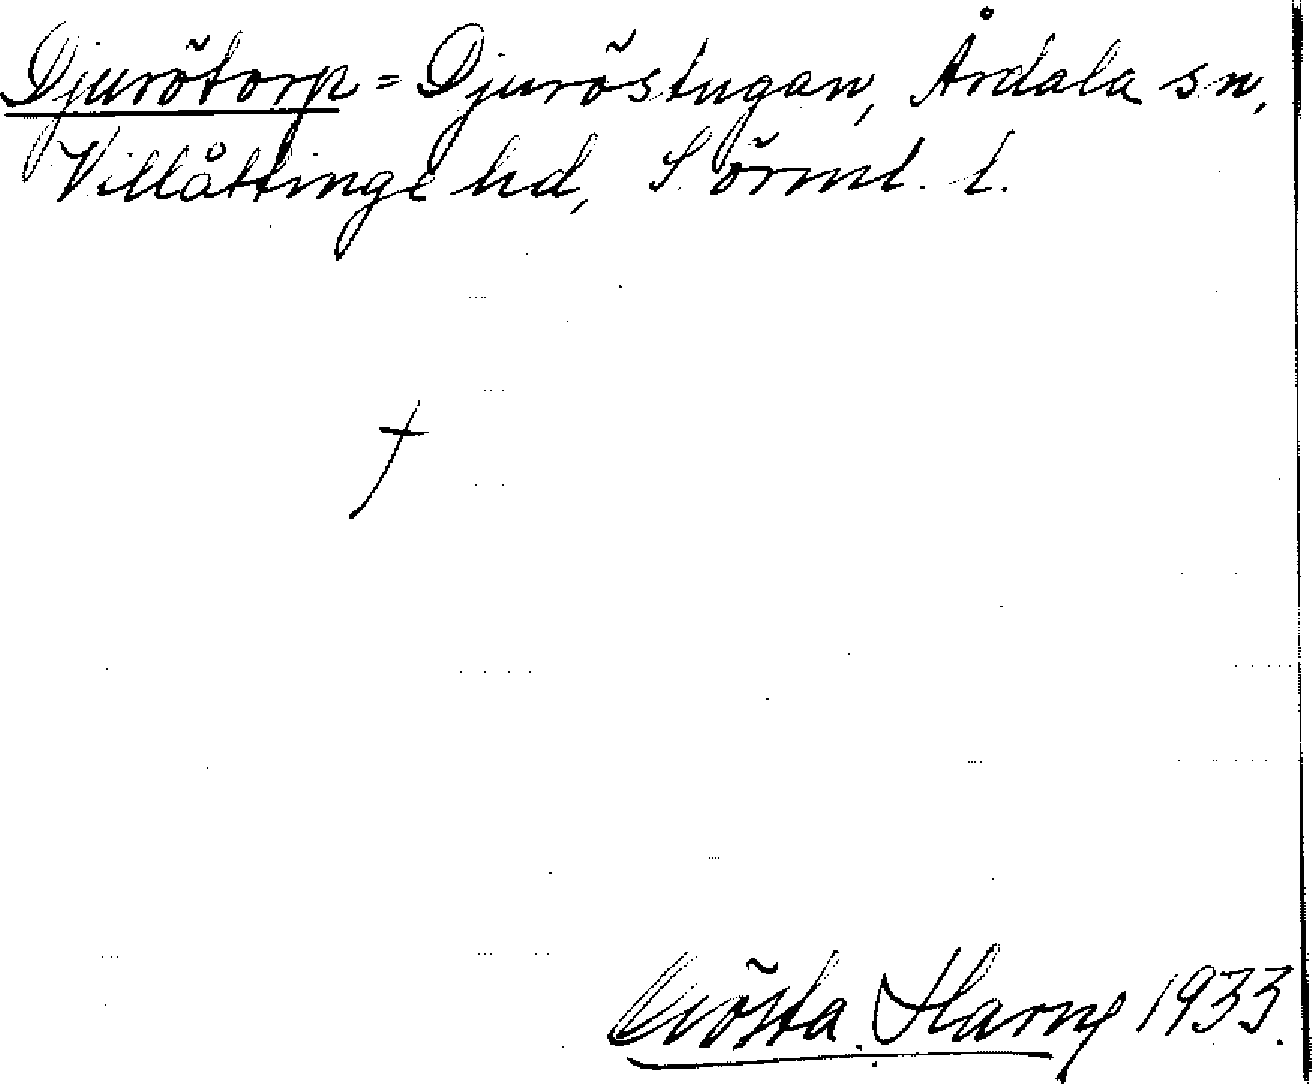 Djurötorp = Djuröstugan, Årdala sn,
Villåttinge hd, Sörml. l.
†
Gösta Harne 1933.